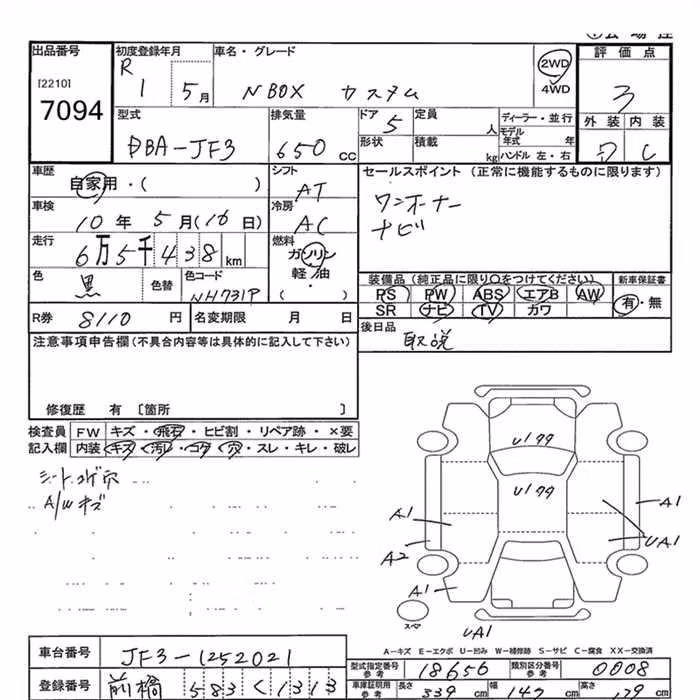 出品番号
[2210]
7094
初度登録年月
R 1 5月
車名・グレード
N BOX カスタム
2WD
4WD
評価点
3
外装 内装
C
型式
DBA-JF3
排気量
650 cc
ドア 5
形状
定員 人
積載 kg
ディーラー・並行
モデル年式 年
ハンドル 左・右
車歴
自家用・( )
シフト
AT
セールスポイント(正常に機能するものに限ります)
ワンオーナー
ナビ
車検
10年 5月(16日)
冷房
AC
走行
6万5千438km
燃料
ガソリン
軽油
( )
色
黒
色替
色コード
NH731P
装備品(純正品に限り○をつけてください)
PS PW ABS エアB AW
SR ナビ TV カワ
新車保証書
有・無
R券 8110 円
名変期限 月 日
後日品
取説
注意事項申告欄(不具合内容等は具体的に記入して下さい)
修復歴 有 [箇所 ]
検査員記入欄
FW キズ・飛石・ヒビ割・リペア跡・×要
内装 キズ・汚レ・コゲ・穴・スレ・キレ・破レ
シートコゲ穴
A/Wキズ
U1
U1
A1
A1
A2
UA1
A1
スペア
UA1
A-キズ E-エクボ U-凹み W-補修跡 S-サビ C-腐食 XX-交換済
車台番号
JF3-1252021
型式指定番号 参考
18656
類別区分番号 参考
0008
登録番号
前橋 583 く 1313
車庫証明用 参考
長さ 339 cm
幅 147 cm
高さ cm